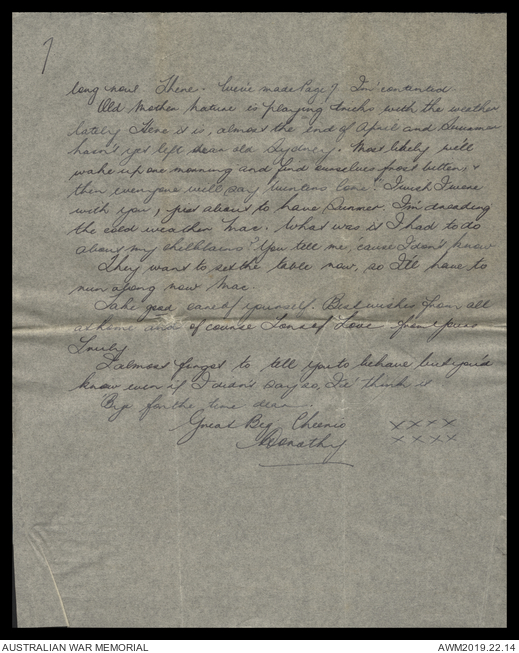 7
long now. There. We've made Page 7 I'm contented
Old Mother Nature is playing tricks with the weather
lately Here it is, almost the end of April and Summer
hasn't yet left dear old Sydney. Most likely we'll
wake up one morning and find ourselves frost bitten, &
then everyone will say winters come! I wish I were
with you, just about to have Summer. I'm dreading
the cold weather Mac. What was it I had to do
about my chilblains? You tell me, 'cause I don't know
They want to set the table now, so I'll have to
run along now Mac.
Take good care of yourself. Best wishes from all
at home and of course Tons of Love from yours
Truly
I almost forgot to tell you to behave but you'd
know even if I didn't say so, I'd think it
'Bye for the time dear
Great Big Cheerio XXXX
Dorothy XXXX
AUSTRALIAN WAR MEMORIAL AWM2019.22.14